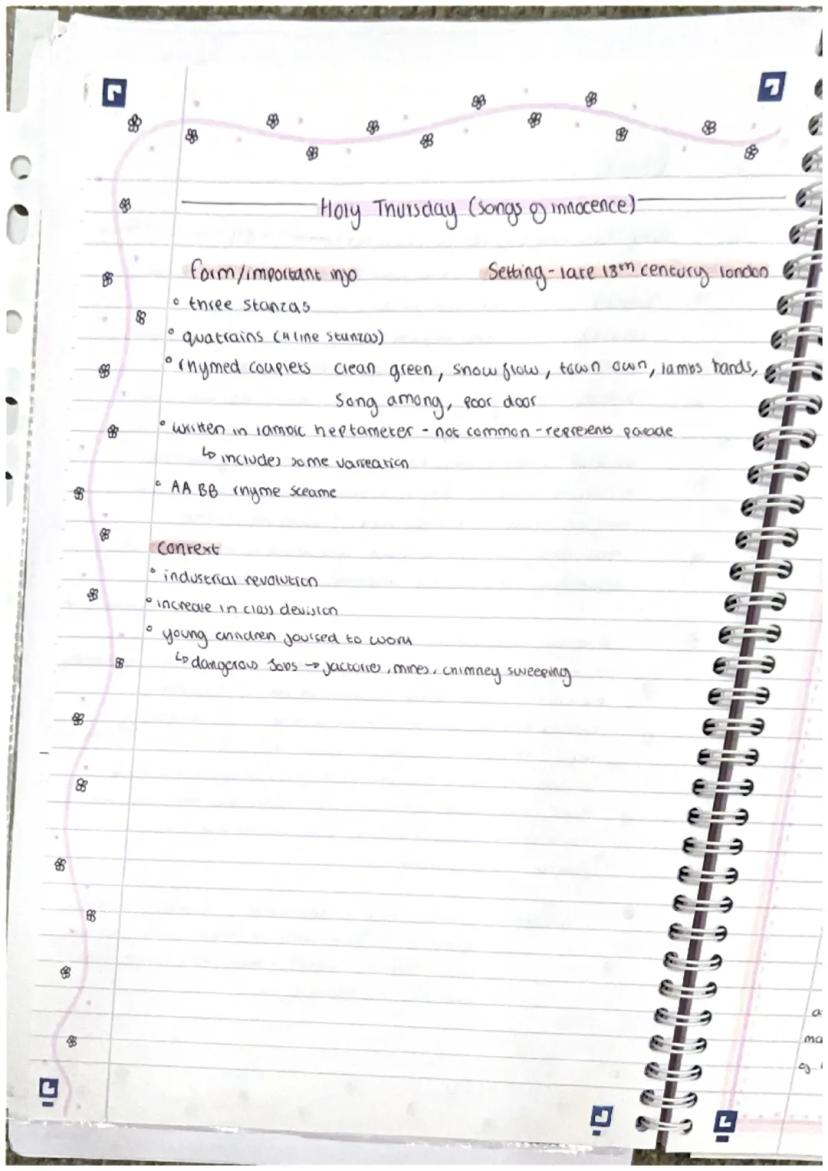 Holy Thursday (songs of innocence)
form/important info
Setting - late 18th century london
° three stanzas
° quatrains (4 line stanzas)
° rhymed couplets clean green, snow flow, town own, lambs hands,
song among, poor door
° written in iambic heptameter - not common - represents parade
↳ includes some varreation
° AA BB rhyme sceame
context
° industrial revolution
° increase in class devision
° young children foursed to work
↳ dangerous jobs → factories, mines, chimney sweeping
a
ma
of